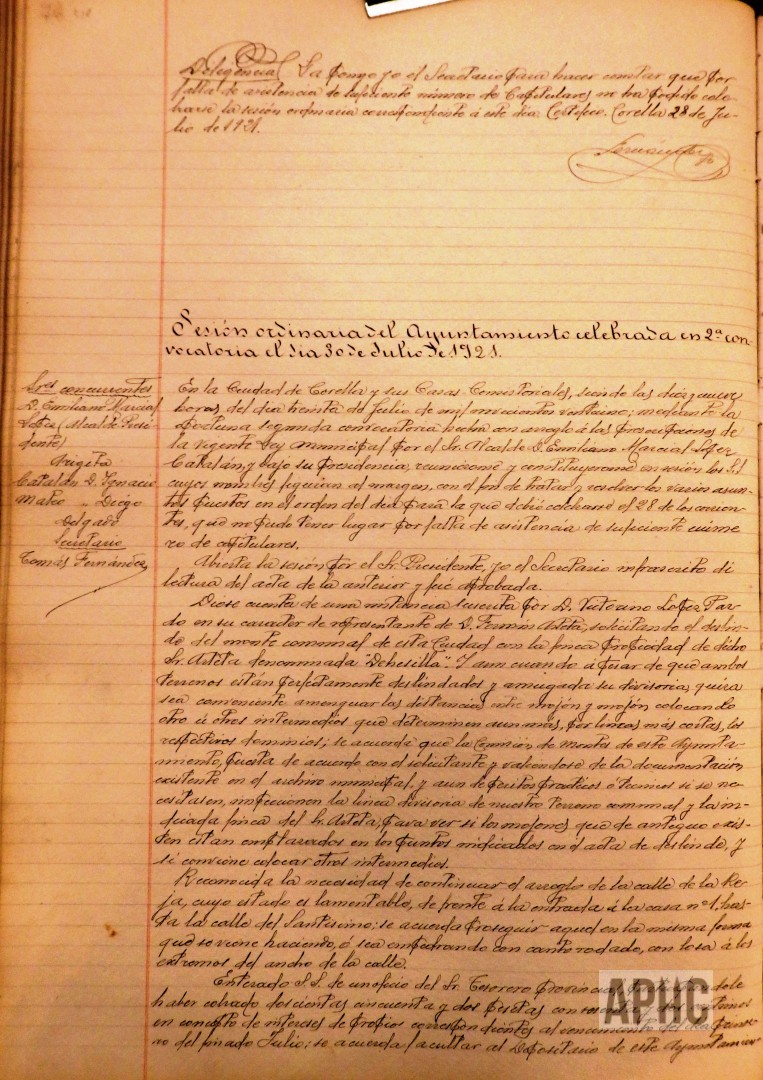 Diligencia La pongo yo el Secretario para hacer constar que por
falta de asistencia de suficiente número de Capitulares no ha podido cele-
brarse la sesión ordinaria correspondiente á este día. Certifico. Corella 28 de Ju-
lio de 1921.
Sesión ordinaria del Ayuntamiento celebrada en 2ª con-
vocatoria el día 30 de Julio de 1921.
Sres concurrentes
D. Emiliano Marcial
López (Alcalde Presi
dente)
Argeta
Catalán D. Ignacio
Mateo " Diego
Delgado
Secretario
Tomás Fernández
En la Ciudad de Corella y sus Casas Consistoriales, siendo las diez y nueve
horas del día treinta de Julio de mil novecientos veintiuno; mediante la
oportuna segunda convocatoria hecha con arreglo á las prescripciones de
la vigente Ley Municipal por el Sr. Alcalde D. Emiliano Marcial López
Catalán, y bajo su presidencia, reuniéronse y constituyeronse en sesión los S.S.
cuyos nombres figuran al margen, con el fin de tratar y resolver los varios asun-
tos puestos en el orden del día para la que debió celebrarse el 28 de los corrien-
tes, que no pudo tener lugar por falta de asistencia de suficiente núme
ro de capitulares.
Abierta la sesión por el Sr. Presidente, yo el Secretario infrascrito di
lectura del acta de la anterior y fué aprobada.
Diose cuenta de una instancia suscrita por D. Victorino López Par-
do en su caracter de representante de D. Fermín Arteta, solicitando el deslin-
de del monte comunal de esta Ciudad con la finca propiedad de dicho
Sr. Arteta denominada "Dehesilla". Y aun cuando á pesar de que ambos
terrenos están perfectamente deslindados y amugada su divisoria, quizá
sea conveniente amenguar las distancias entre mojón y mojón colocando
otro ú otros intermedios que determinen aun más, por líneas más cortas, los
respectivos dominios; se acuerda que la Comisión de Montes de este Ayunta-
miento, puesta de acuerdo con el solicitante y valiéndose de la documentación
existente en el archivo municipal, y aun de peritos prácticos ó técnicos si se ne-
cesitasen, inspeccionen la línea divisoria de nuestro terreno comunal y la in-
dicada finca del Sr. Arteta, para ver si los mojones que de antiguo exis-
ten están emplazados en los puntos indicados en el acta de deslinde, y
si conviene colocar otros intermedios.
Reconocida la necesidad de continuar el arreglo de la calle de la Re-
ja, cuyo estado es lamentable, de frente á la entrada á la casa nº 1, has-
ta la calle del Santísimo; se acuerda proseguir aquel en la misma forma
que se viene haciendo, ó sea empedrando con canto rodado, con losa á los
extremos del ancho de la calle.
Enterado S.S. de un oficio del Sr. Tesorero Provincial
haber cobrado doscientas cincuenta y dos pesetas con
en concepto de intereses de Propios correspondientes al vencimiento del
ro del finado Julio; se acuerda facultar al Depositario de este Ayuntamien
APHC